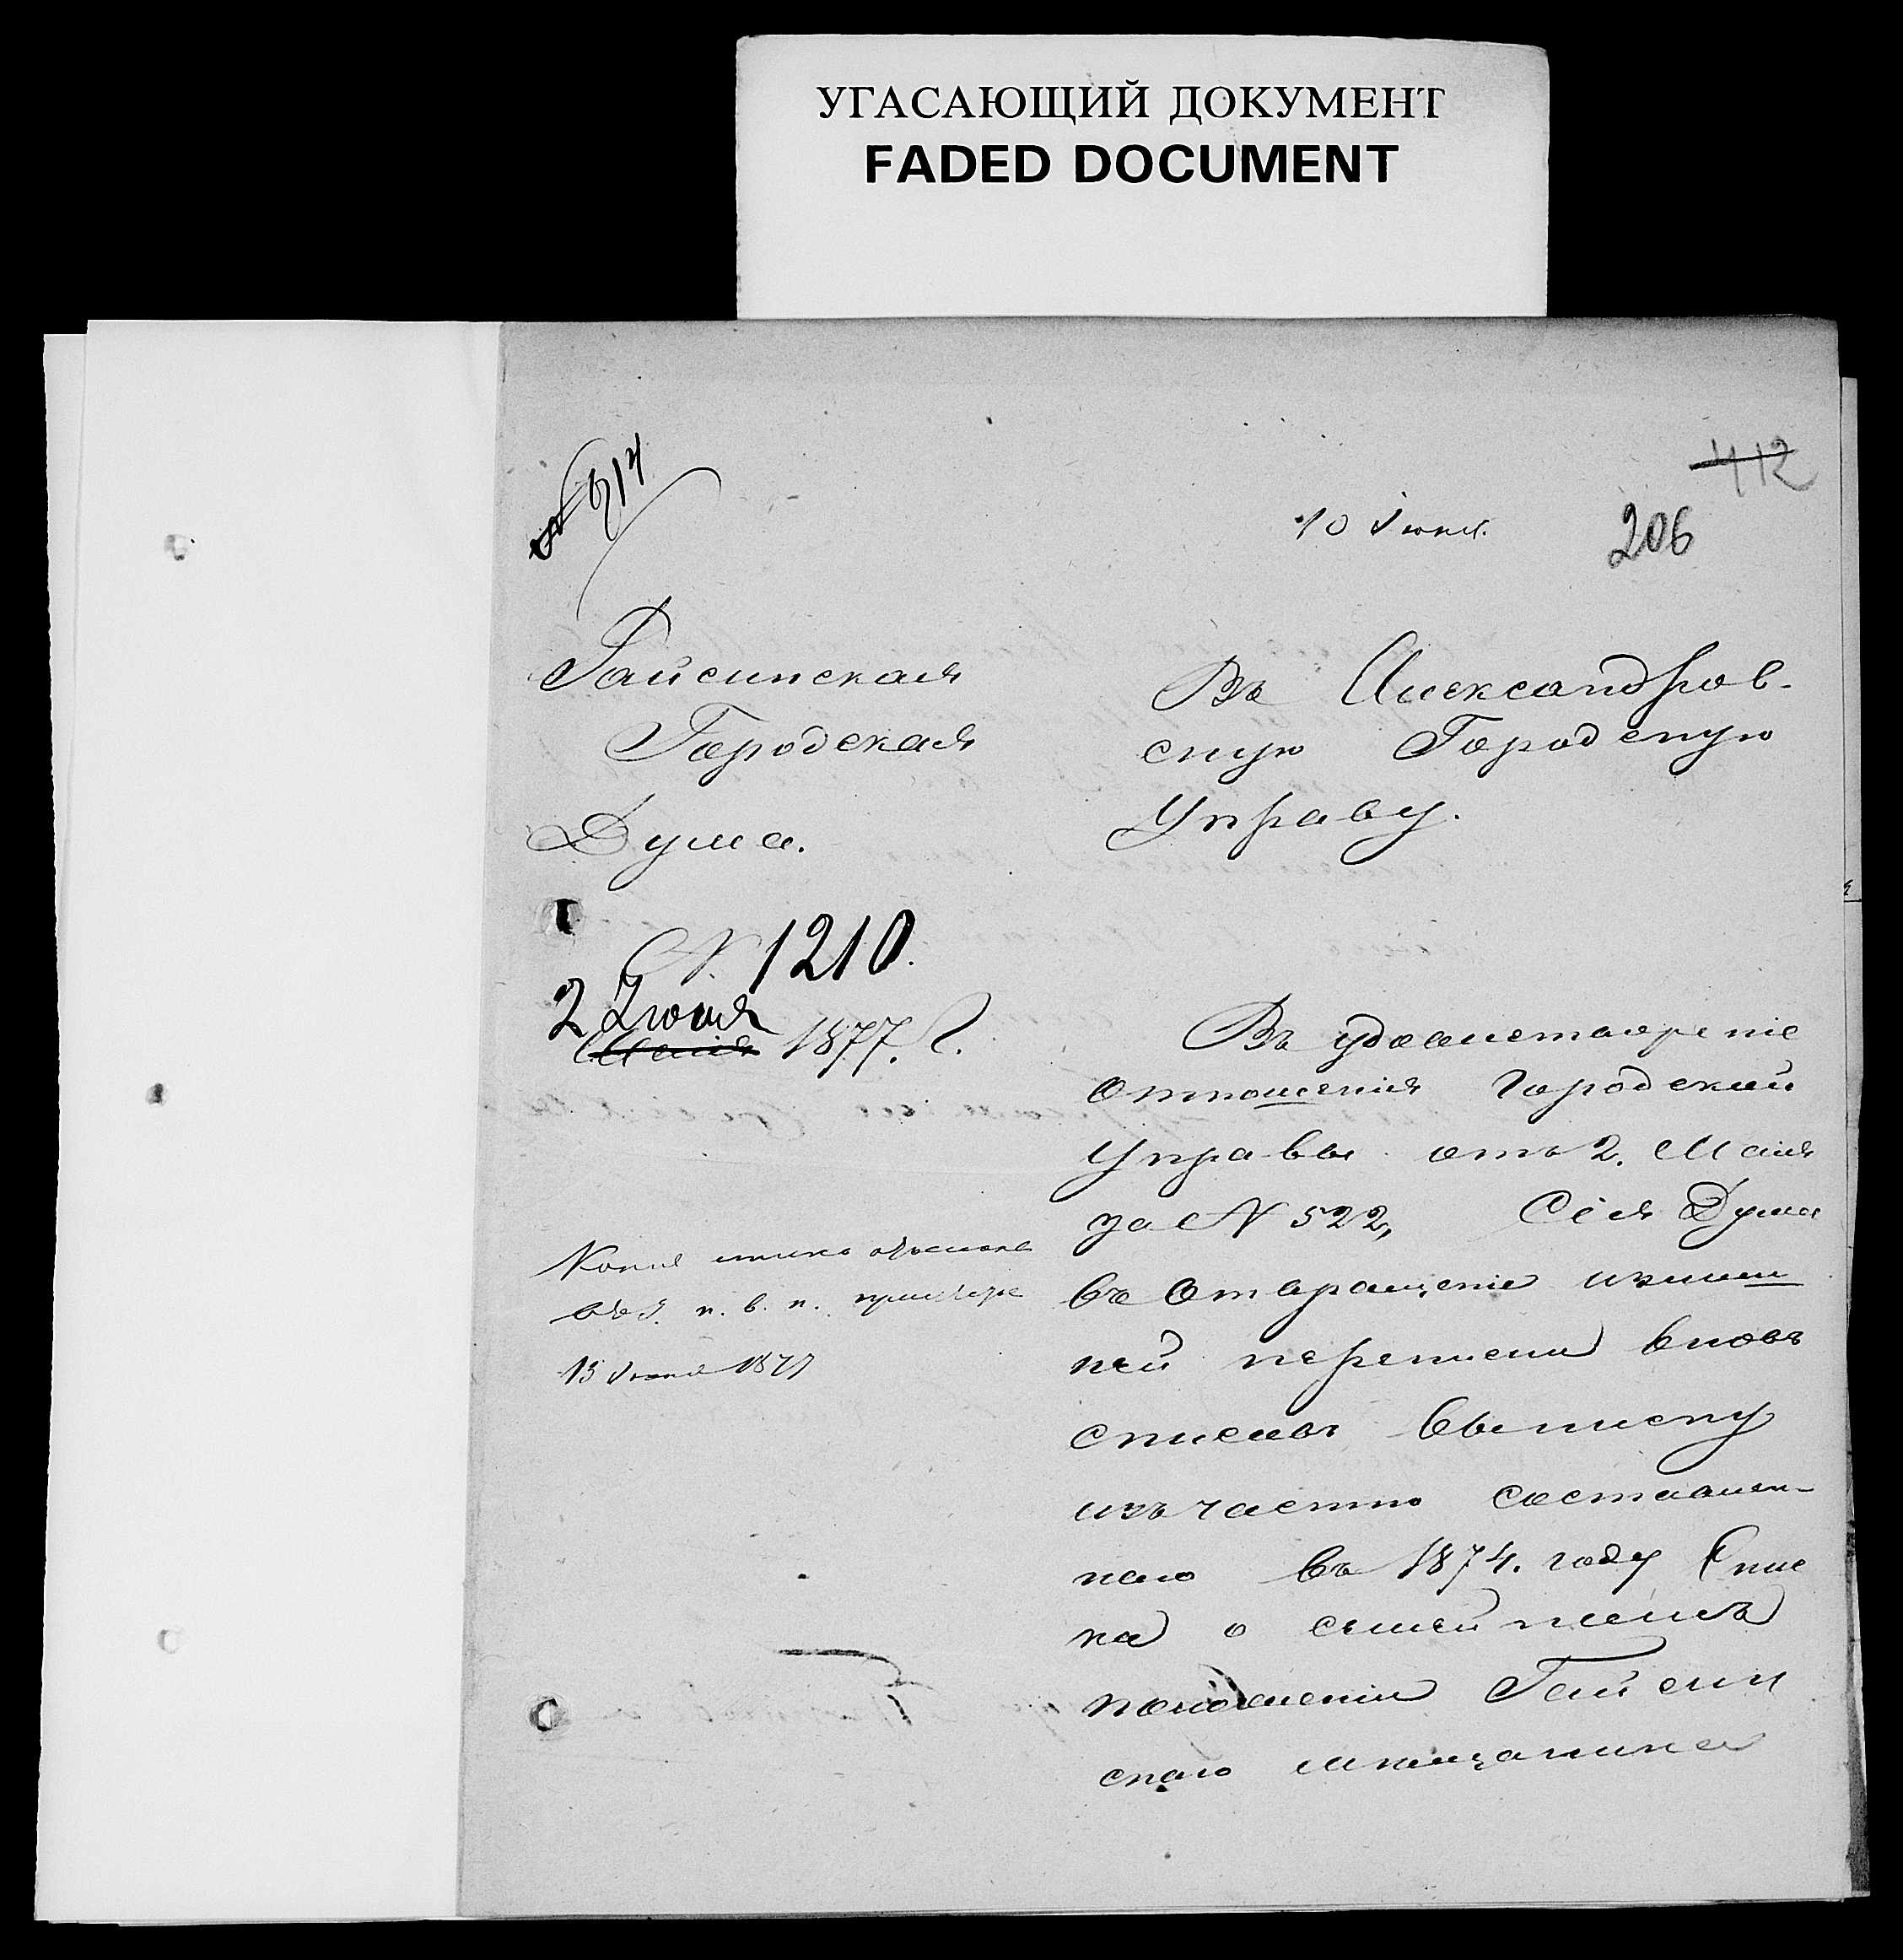 УГАСАЮЩИЙ ДОКУМЕНТ
FADED DOCUMENT
412
№ 914
10 Іюня.
206
Гайсинская
Городская
Дума.
N. 1210.
2 Іюня
Маія 1877. г.
Копія
13 Іюня 1877
Въ Александров-
скую Городскую
Управу.
Въ удовлетвореніе
отношенія Городской
Управы отъ 2. Маія
за N 522, Сія Дума
въ отвращеніе излиш
ней переписки вновь
списавъ выписку
изъ частно составлен-
наго въ 1874. году Спис
ка о семейномъ
положеніи Гайсин
скаго мѣщанина